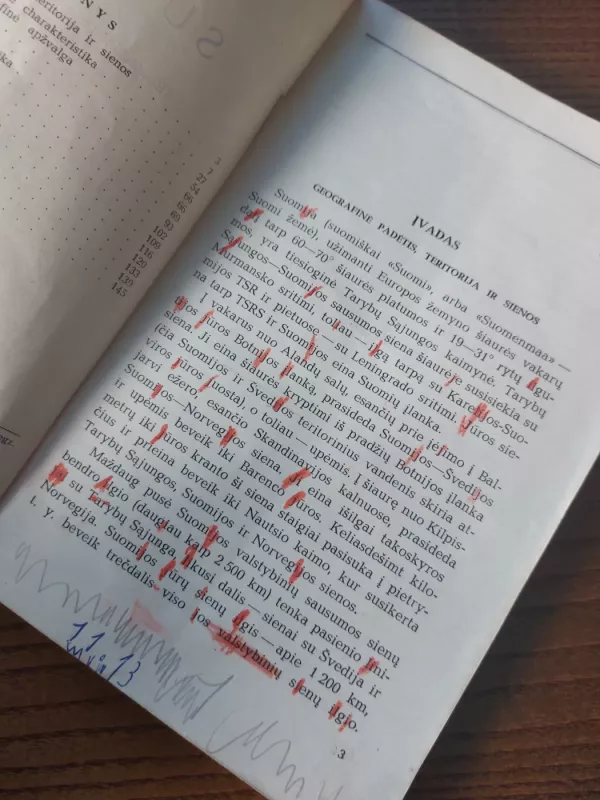 N Y S
teritorija ir sienos
charakteristika
finė apžvalga
ika
3
7
27
54
66
66
69
93
107
109
116
129
133
139
145
ĮVADAS
GEOGRAFINĖ PADĖTIS, TERITORIJA IR SIENOS
Suomija (suomiškai «Suomi», arba «Suomenmaa» —
Suomi žemė), užimanti Europos žemyno šiaurės vakarų
dalį tarp 60—70° šiaurės platumos ir 19—31° rytų ilgu-
mos, yra tiesioginė Tarybų Sąjungos kaimynė. Tarybų
Sąjungos—Suomijos sausumos siena šiaurėje susisiekia su
Murmansko sritimi, toliau — ilgą tarpą su Karelijos-Suo-
mijos TSR ir pietuose — su Leningrado sritimi. Jūros sie-
na tarp TSRS ir Suomijos eina Suomių įlanka.
Į vakarus nuo Alandų salų, esančių prie įėjimo į Bal-
tijos jūros Botnijos įlanką, prasideda Suomijos—Švedijos
siena. Ji eina šiaurės kryptimi iš pradžių Botnijos įlanka
(čia Suomijos ir Švedijos teritorinius vandenis skiria at-
viros jūros juosta), o toliau — upėmis. Į šiaurę nuo Kilpis-
jarvi ežero, esančio Skandinavijos kalnuose, prasideda
Suomijos—Norvegijos siena. Ji eina išilgai takoskyros
ir upėmis beveik iki Barenco jūros. Keliasdešimt kilo-
metrų iki jūros kranto ši siena staigiai pasisuka į pietry-
čius ir prieina beveik iki Nautsio kaimo, kur susikerta
Tarybų Sąjungos, Suomijos ir Norvegijos sienos.
Maždaug pusė Suomijos valstybinių sausumos sienų
bendro ilgio (daugiau kaip 2 500 km) tenka pasienio lini-
jai su Tarybų Sąjunga, likusi dalis — sienai su Švedija ir
Norvegija. Suomijos jūrų sienų ilgis — apie 1 200 km,
t. y. beveik trečdalis viso jos valstybinių sienų ilgio.
3